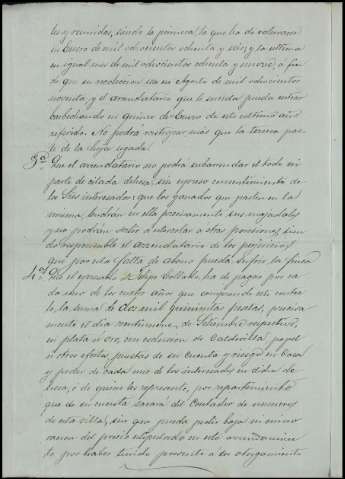 les y reunidas, siendo la primera, la que ha de rotularse
en Enero de mil ochocientos ochenta y seis, y la ultima
en igual mes de mil ochocientos ochenta y nueve, a fin
de que su recoleccion sea en Agosto de mil ochocientos
noventa y el arrendatario que le suceda pueda entrar
barbechando en quince de Enero de este ultimo año
referido. No podrá rastrojar más que la tercera par
te de la hoja segada.
3ª Que el arrendatario no podrá subarrendar el todo ni
parte de citada dehesa, sin expreso consentimiento de
los Sres interesados; que los ganados que pasten en la
misma, tendrán en ella precisamente sus majadales
y no podrán salir á estercolar a otras posesiones, sien
do responsable el arrendatario de los perjuicios
que por esta falta de abono pueda sufrir la finca
4ª Que el expresado Felipe Collado ha de pagar por ca
da uno de los cuatro años que comprende este contra
to, la suma de dos mil quinientas pesetas, precisa
mente el dia veintinueve de Setiembre respectivo,
en plata ú oro, con exclusion de calderilla papel
ú otros efectos, puestas de su cuenta y riesgo en casa
y poder de cada uno de los interesados en dicha de
hesa, ó de quien les represente, por repartimiento
que de su cuenta sacará del Contador de numeros
de esta villa, sin que pueda pedir baja ni mino
racion del precio estipulado en este arrendamien
to por haber tenido presente á su otorgamiento